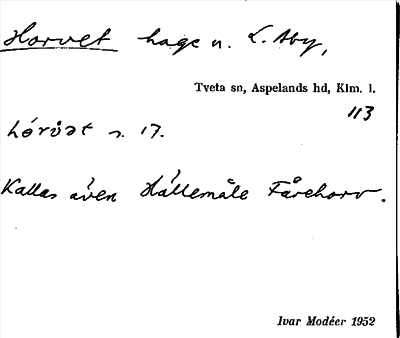 Horvet hage u. L. Aby,
Tveta sn, Aspelands hd, Klm. l.
113
hórvət n. 17.
Kallas även Hällemåle Fårehorv.
Ivar Modéer 1952